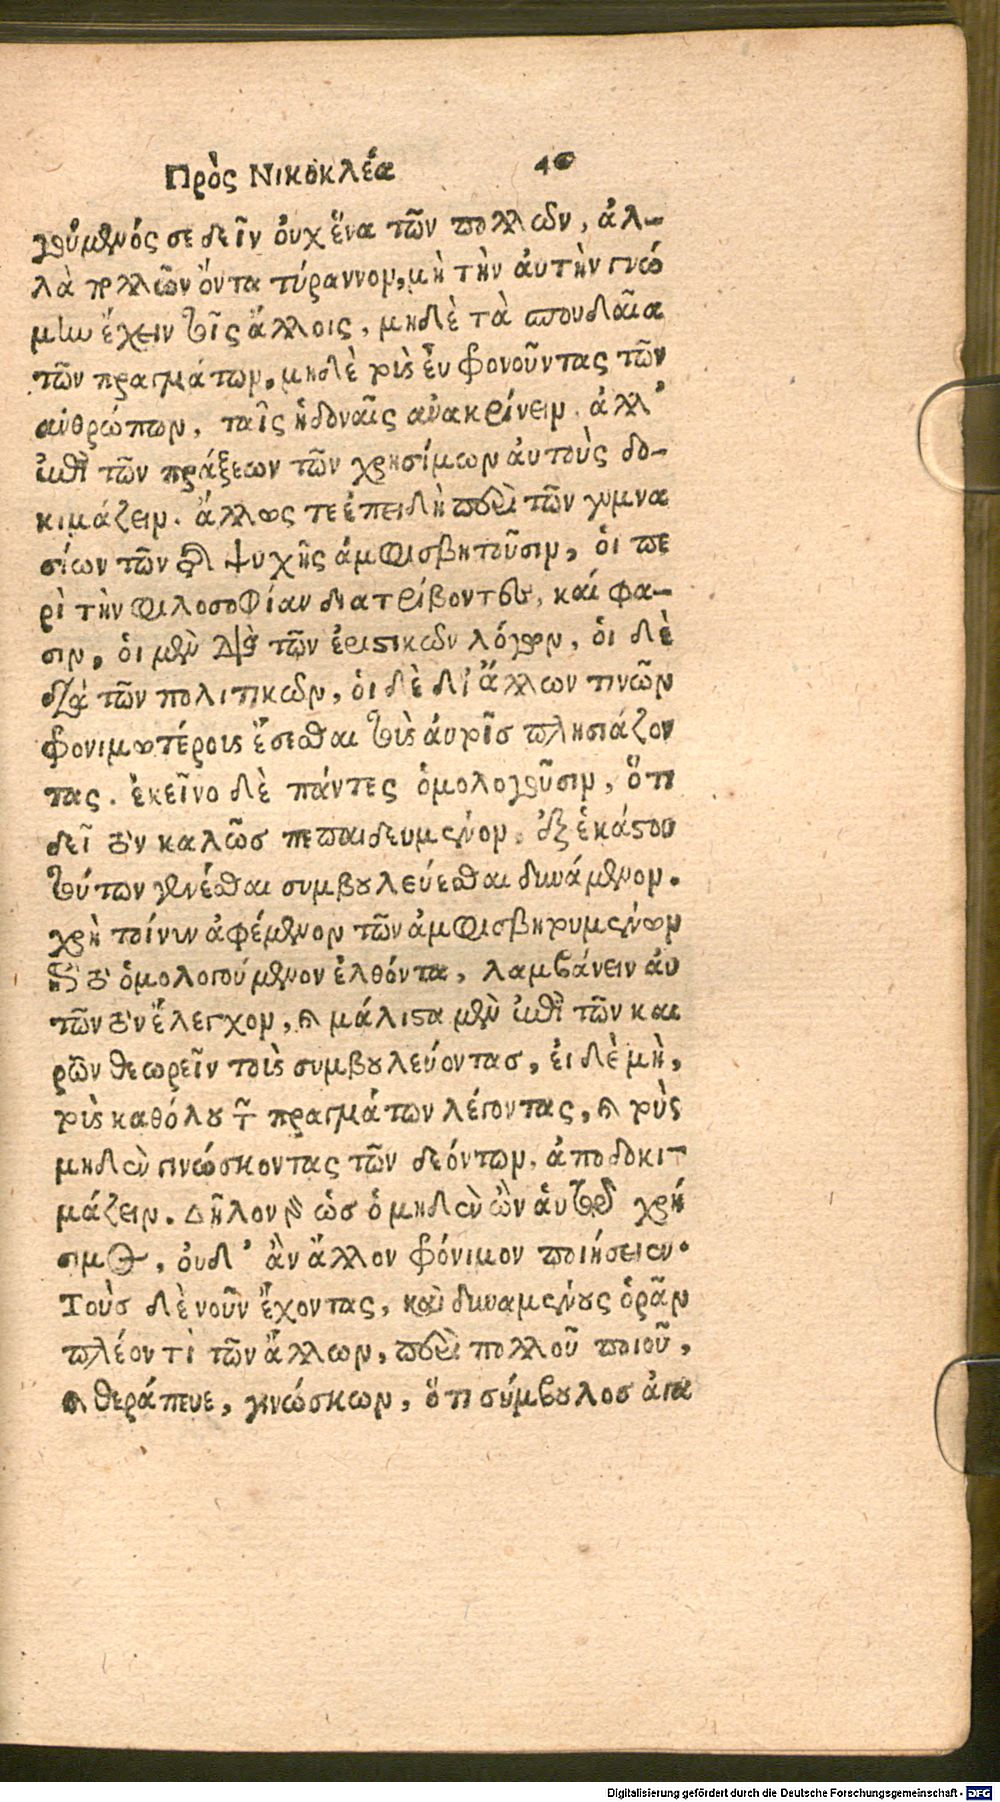 Πρὸς Νικοκλέα 46
γούμενός σε δεῖν ὀυχ ἕνα τῶν πολλῶν, ἀλ-
λὰ πολλῶν ὄντα τύραννον, μὴ τὴν ἀυτὴν γνώ
μην ἔχειν τοῖς ἄλλοις, μηδὲ τὰ σπουδαῖα
τῶν πραγμάτων, μηδὲ τοὺς ἐυ φρονοῦντας τῶν
ἀνθρώπων, ταῖς ἡδοναῖς ἀνακρίνειν. ἀλλ'
ἐπὶ τῶν πράξεων τῶν χρησίμων ἀυτοὺς δο-
κιμάζειν. ἄλλως τε ἐπειδὴ περὶ τῶν γυμνα
σίων τῶν τῆς ψυχῆς ἀμφισβητοῦσιν, ὁι πε
ρὶ τὴν φιλοσοφίαν διατρίβοντες, καί φα-
σιν, ὁι μὲν διὰ τῶν ἐριστικῶν λόγων, ὁι δὲ
διὰ τῶν πολιτικῶν, ὁι δὲ δι' ἄλλων τινῶν
φρονιμωτέροις ἔσεσθαι τοὺς ἀυτοῖς πλησιάζον
τας. ἐκεῖνο δὲ πάντες ὁμολογοῦσιν, ὅτι
δεῖ τὸν καλῶς πεπαιδευμένον, ἐξ ἑκάστου
τούτων γενέσθαι συμβουλεύεσθαι δυνάμενον.
χρὴ τοίνυν ἀφέμενον τῶν ἀμφισβητουμένων
ἐπὶ τὸ ὁμολογούμενον ἐλθόντα, λαμβάνειν ἀυ
τῶν τὸν ἔλεγχον, καὶ μάλιστα μὲν ἐπὶ τῶν και
ρῶν θεωρεῖν τοὺς συμβουλεύοντας, ἐι δὲ μὴ,
τοὺς καθόλου τῶν πραγμάτων λέγοντας, καὶ τοὺς
μηδὲν γινώσκοντας τῶν δεόντων, ἀποδοκι-
μάζειν. Δῆλον γὰρ ὡς ὁ μηδὲν ὢν ἁυτῷ χρή
σιμος, ὀυδ' ἂν ἄλλον φρόνιμον ποιήσειεν.
Τοὺς δὲ νοῦν ἔχοντας, καὶ δυναμένους ὁρᾶν
πλέον τὶ τῶν ἄλλων, περὶ πολλοῦ ποιοῦ,
καὶ θεράπευε, γινώσκων, ὅτι σύμβουλος ἀγα
Digitalisierung gefördert durch die Deutsche Forschungsgemeinschaft - DFG